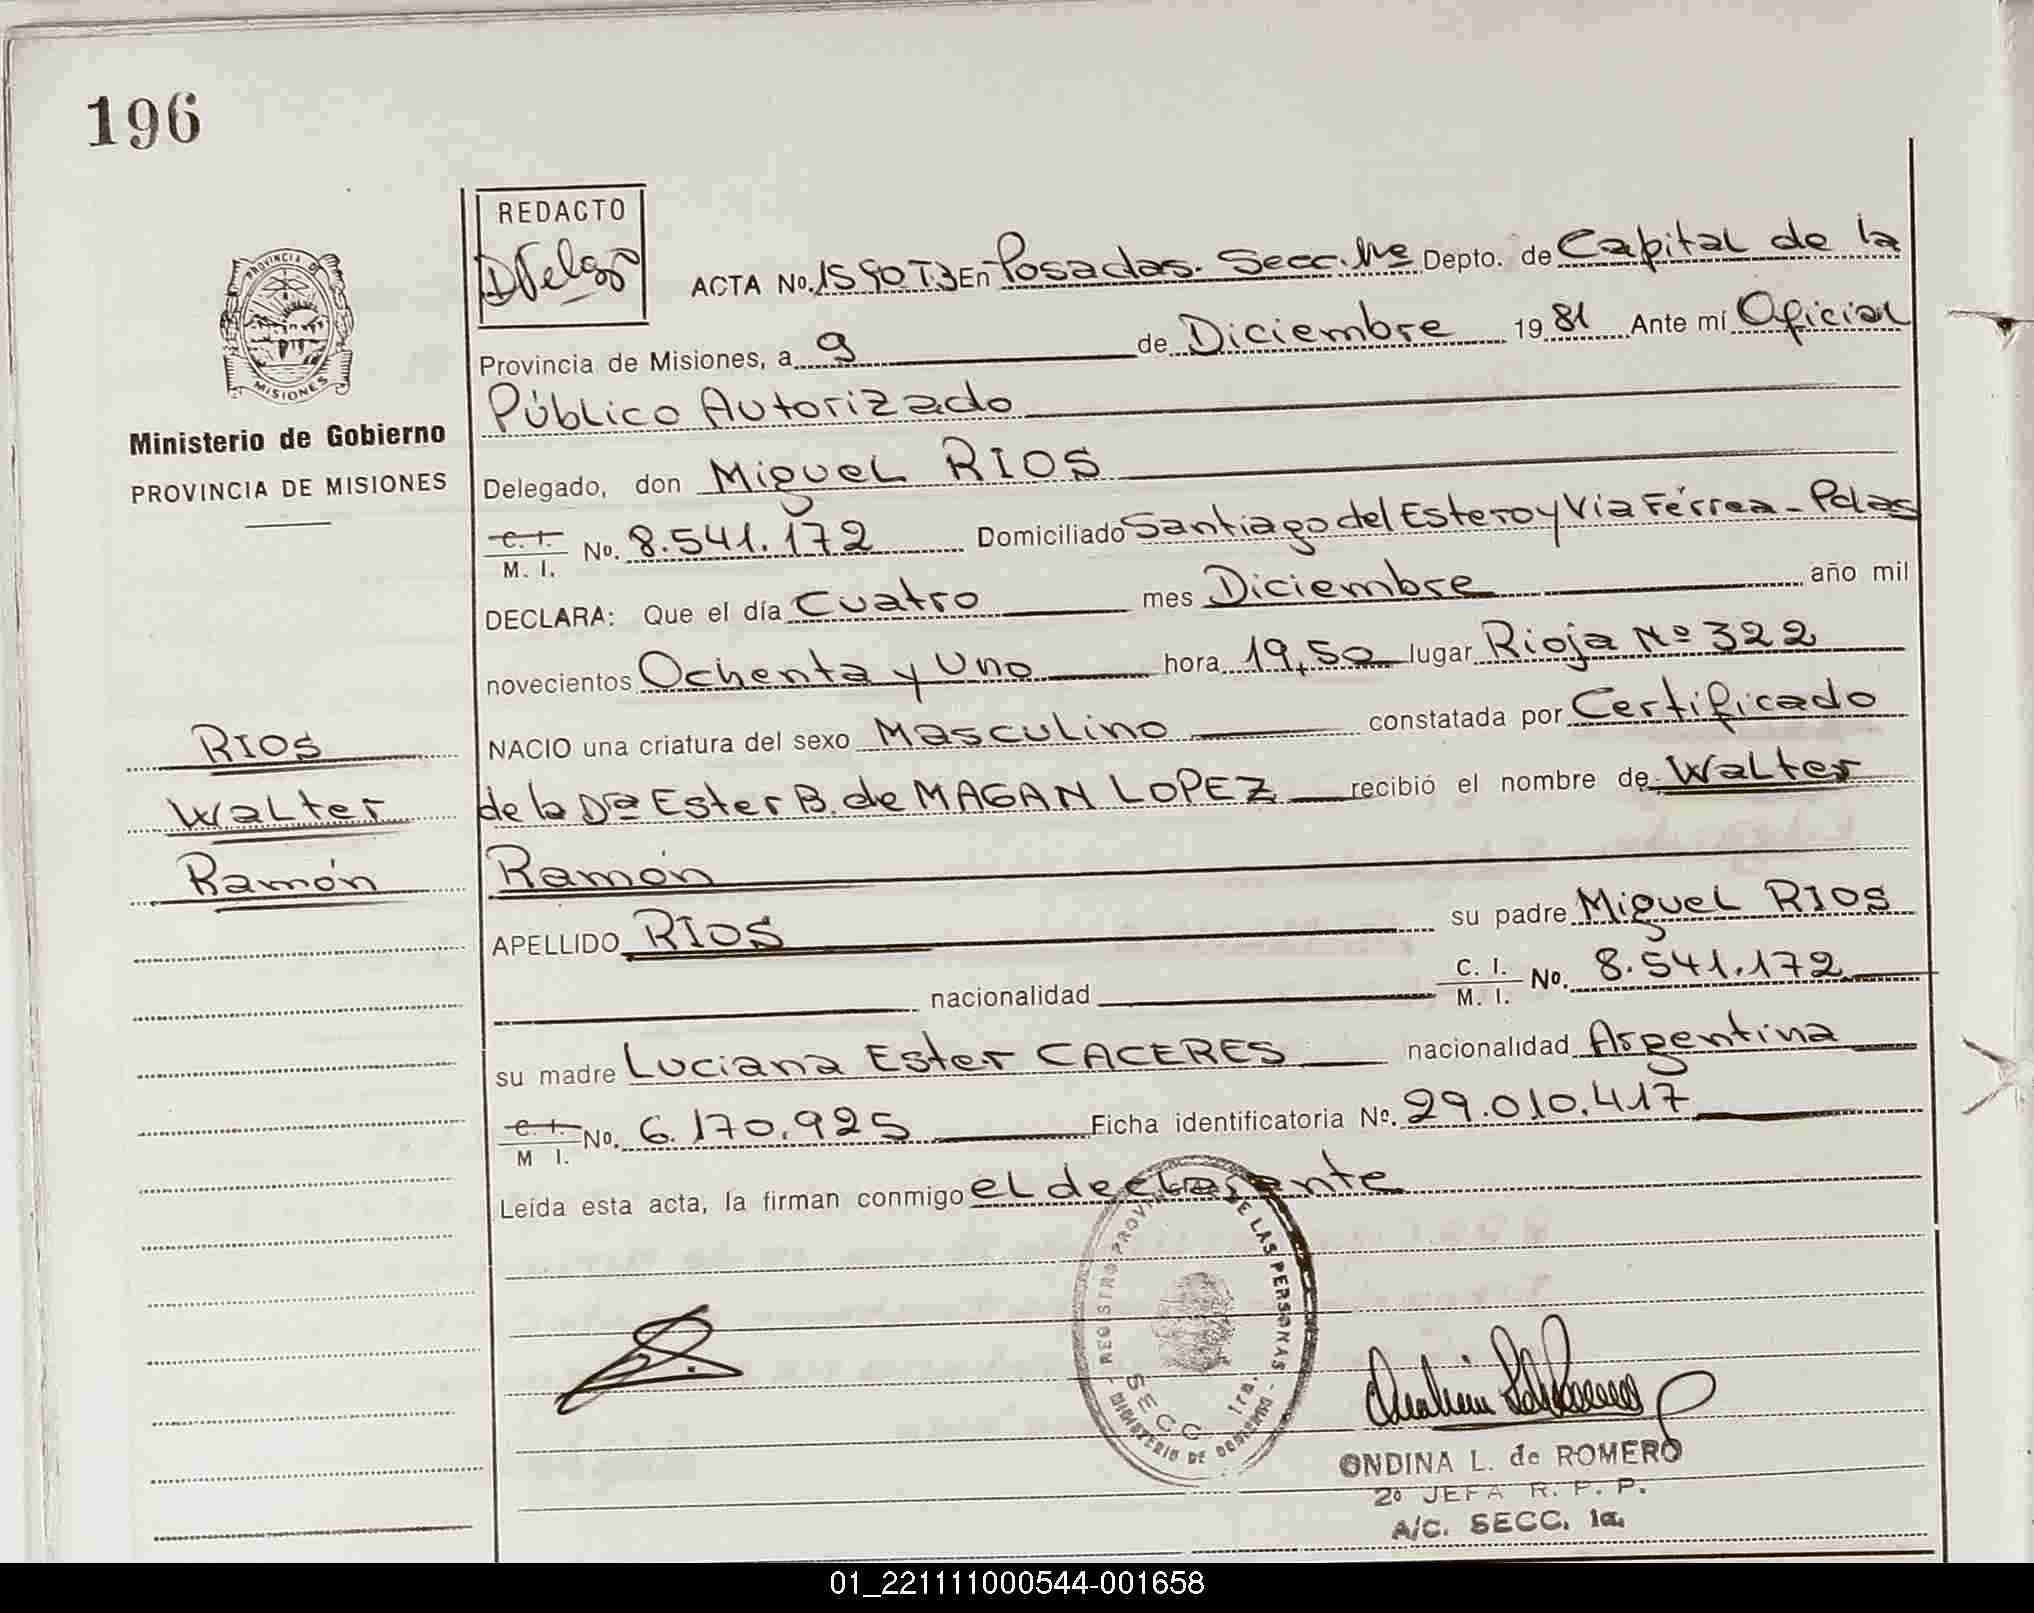 196
REDACTO
ACTA No. 1590 T.3 En Posadas. Secc. 1ra Depto. de Capital de la
Provincia de Misiones, a 9 de Diciembre 1981 Ante mí Oficial
Público Autorizado
PROVINCIA DE MISIONES
Ministerio de Gobierno
PROVINCIA DE MISIONES
Delegado, don Miguel RIOS
C. I. M. I. No. 8.541.172 Domiciliado Santiago del Estero y Vía Férrea - Pdas
DECLARA: Que el día Cuatro mes Diciembre año mil
novecientos Ochenta y Uno hora 19,50 lugar Rioja Nº 322
NACIO una criatura del sexo Masculino constatada por Certificado
de la Dra Ester B. de MAGAN LOPEZ recibió el nombre de Walter
Ramón
RIOS
Walter
Ramón
APELLIDO RIOS su padre Miguel RIOS
nacionalidad C. I. M. I. No. 8.541.172
su madre Luciana Ester CACERES nacionalidad Argentina
C. I. M I. No. 6.170.925 Ficha identificatoria Nº. 29.010.417
Leída esta acta, la firman conmigo el declarante
REGISTRO PROVINCIAL DE LAS PERSONAS
SECC. 1ra.
- MINISTERIO DE GOBIERNO -
ONDINA L. de ROMERO
2º JEFA R. P. P.
A/C. SECC. 1a.
01_221111000544-001658